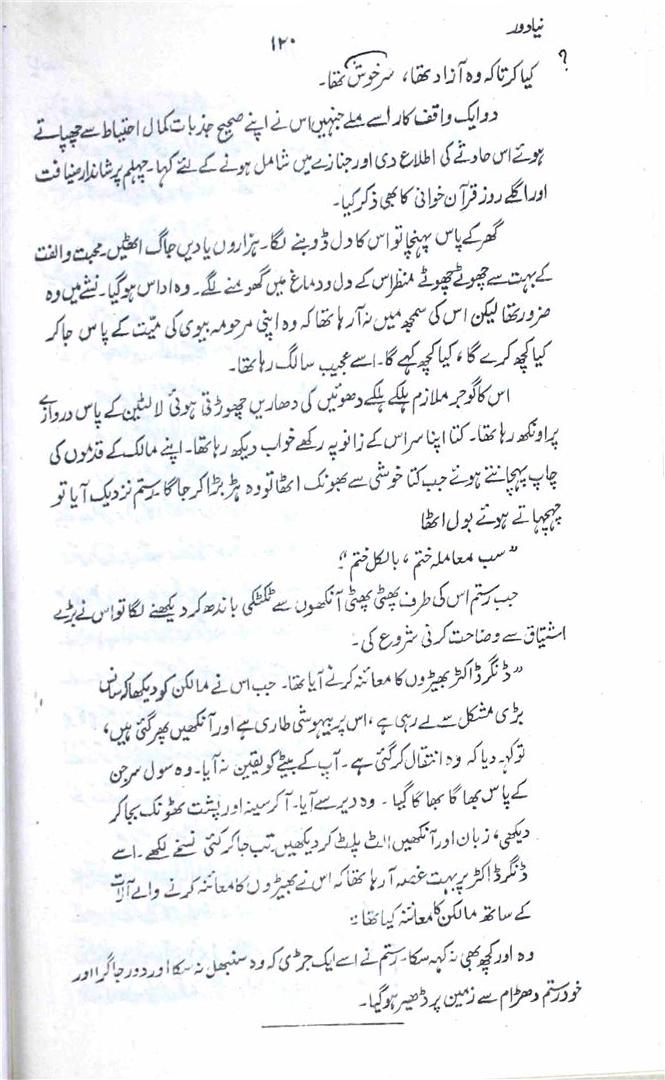 نیا دور
۱۲۰
؟
کیا کرتا کہ وہ آزاد تھا، سرخوش تھا۔
دو ایک واقف کار اسے ملے جنہیں اس نے اپنے صحیح جذبات کمال احتیاط سے چھپاتے
ہوئے اس حادثے کی اطلاع دی اور جنازے میں شامل ہونے کے لئے کہا۔ چہلم پر شاندار ضیافت
اور اگلے روز قرآن خوانی کا بھی ذکر کیا۔
گھر کے پاس پہنچا تو اس کا دل ڈوبنے لگا۔ ہزاروں یادیں جاگ اٹھیں۔ محبت و الفت
کے بہت سے چھوٹے چھوٹے منظر اس کے دل و دماغ میں گھومنے لگے۔ وہ اداس ہو گیا۔ نشے میں وہ
ضرور تھا لیکن اس کی سمجھ میں نہ آ رہا تھا کہ وہ اپنی مرحومہ بیوی کی میّت کے پاس جا کر
کیا کچھ کرے گا، کیا کچھ کہے گا۔ اسے عجیب سا لگ رہا تھا۔
اس کا گوجر ملازم ہلکے ہلکے دھوئیں کی دھاریں چھوڑتی ہوئی لالٹین کے پاس دروازے
پر اونگھ رہا تھا۔ کتا اپنا سر اس کے زانو پہ رکھے خواب دیکھ رہا تھا۔ اپنے مالک کے قدموں کی
چاپ پہچانتے ہوئے جب کتا خوشی سے بھونک اٹھا تو وہ ہڑبڑا کر جاگا۔ رستم نزدیک آیا تو
چہچہاتے ہوئے بول اٹھا
”سب معاملہ ختم، بالکل ختم“۔
جب رستم اس کی طرف پھٹی پھٹی آنکھوں سے ٹکٹکی باندھ کر دیکھنے لگا تو اس نے بڑے
اشتیاق سے وضاحت کرنی شروع کی۔
”ڈنگر ڈاکٹر بھیڑوں کا معائنہ کرنے آیا تھا۔ جب اس نے مالکن کو دیکھا کہ سانس
بڑی مشکل سے لے رہی ہے، اس پر بیہوشی طاری ہے اور آنکھیں پھر گئی ہیں،
تو کہہ دیا کہ وہ انتقال کر گئی ہے۔ آپ کے بیٹے کو یقین نہ آیا۔ وہ سول سرجن
کے پاس بھاگا بھاگا گیا۔ وہ دیر سے آیا۔ آ کر سینہ اور پشت ٹھونک بجا کر
دیکھی، زبان اور آنکھیں الٹ پلٹ کر دیکھیں۔ تب جا کر کئی نسخے لکھے۔ اسے
ڈنگر ڈاکٹر پر بہت غصہ آ رہا تھا کہ اس نے بھیڑوں کا معائنہ کرنے والے آلات
کے ساتھ مالکن کا معائنہ کیا تھا۔“
وہ اور کچھ بھی نہ کہہ سکا۔ رستم نے اسے ایک جڑی کہ وہ سنبھل نہ سکا اور دور جا گرا اور
خود رستم دھڑام سے زمین پر ڈھیر ہو گیا۔